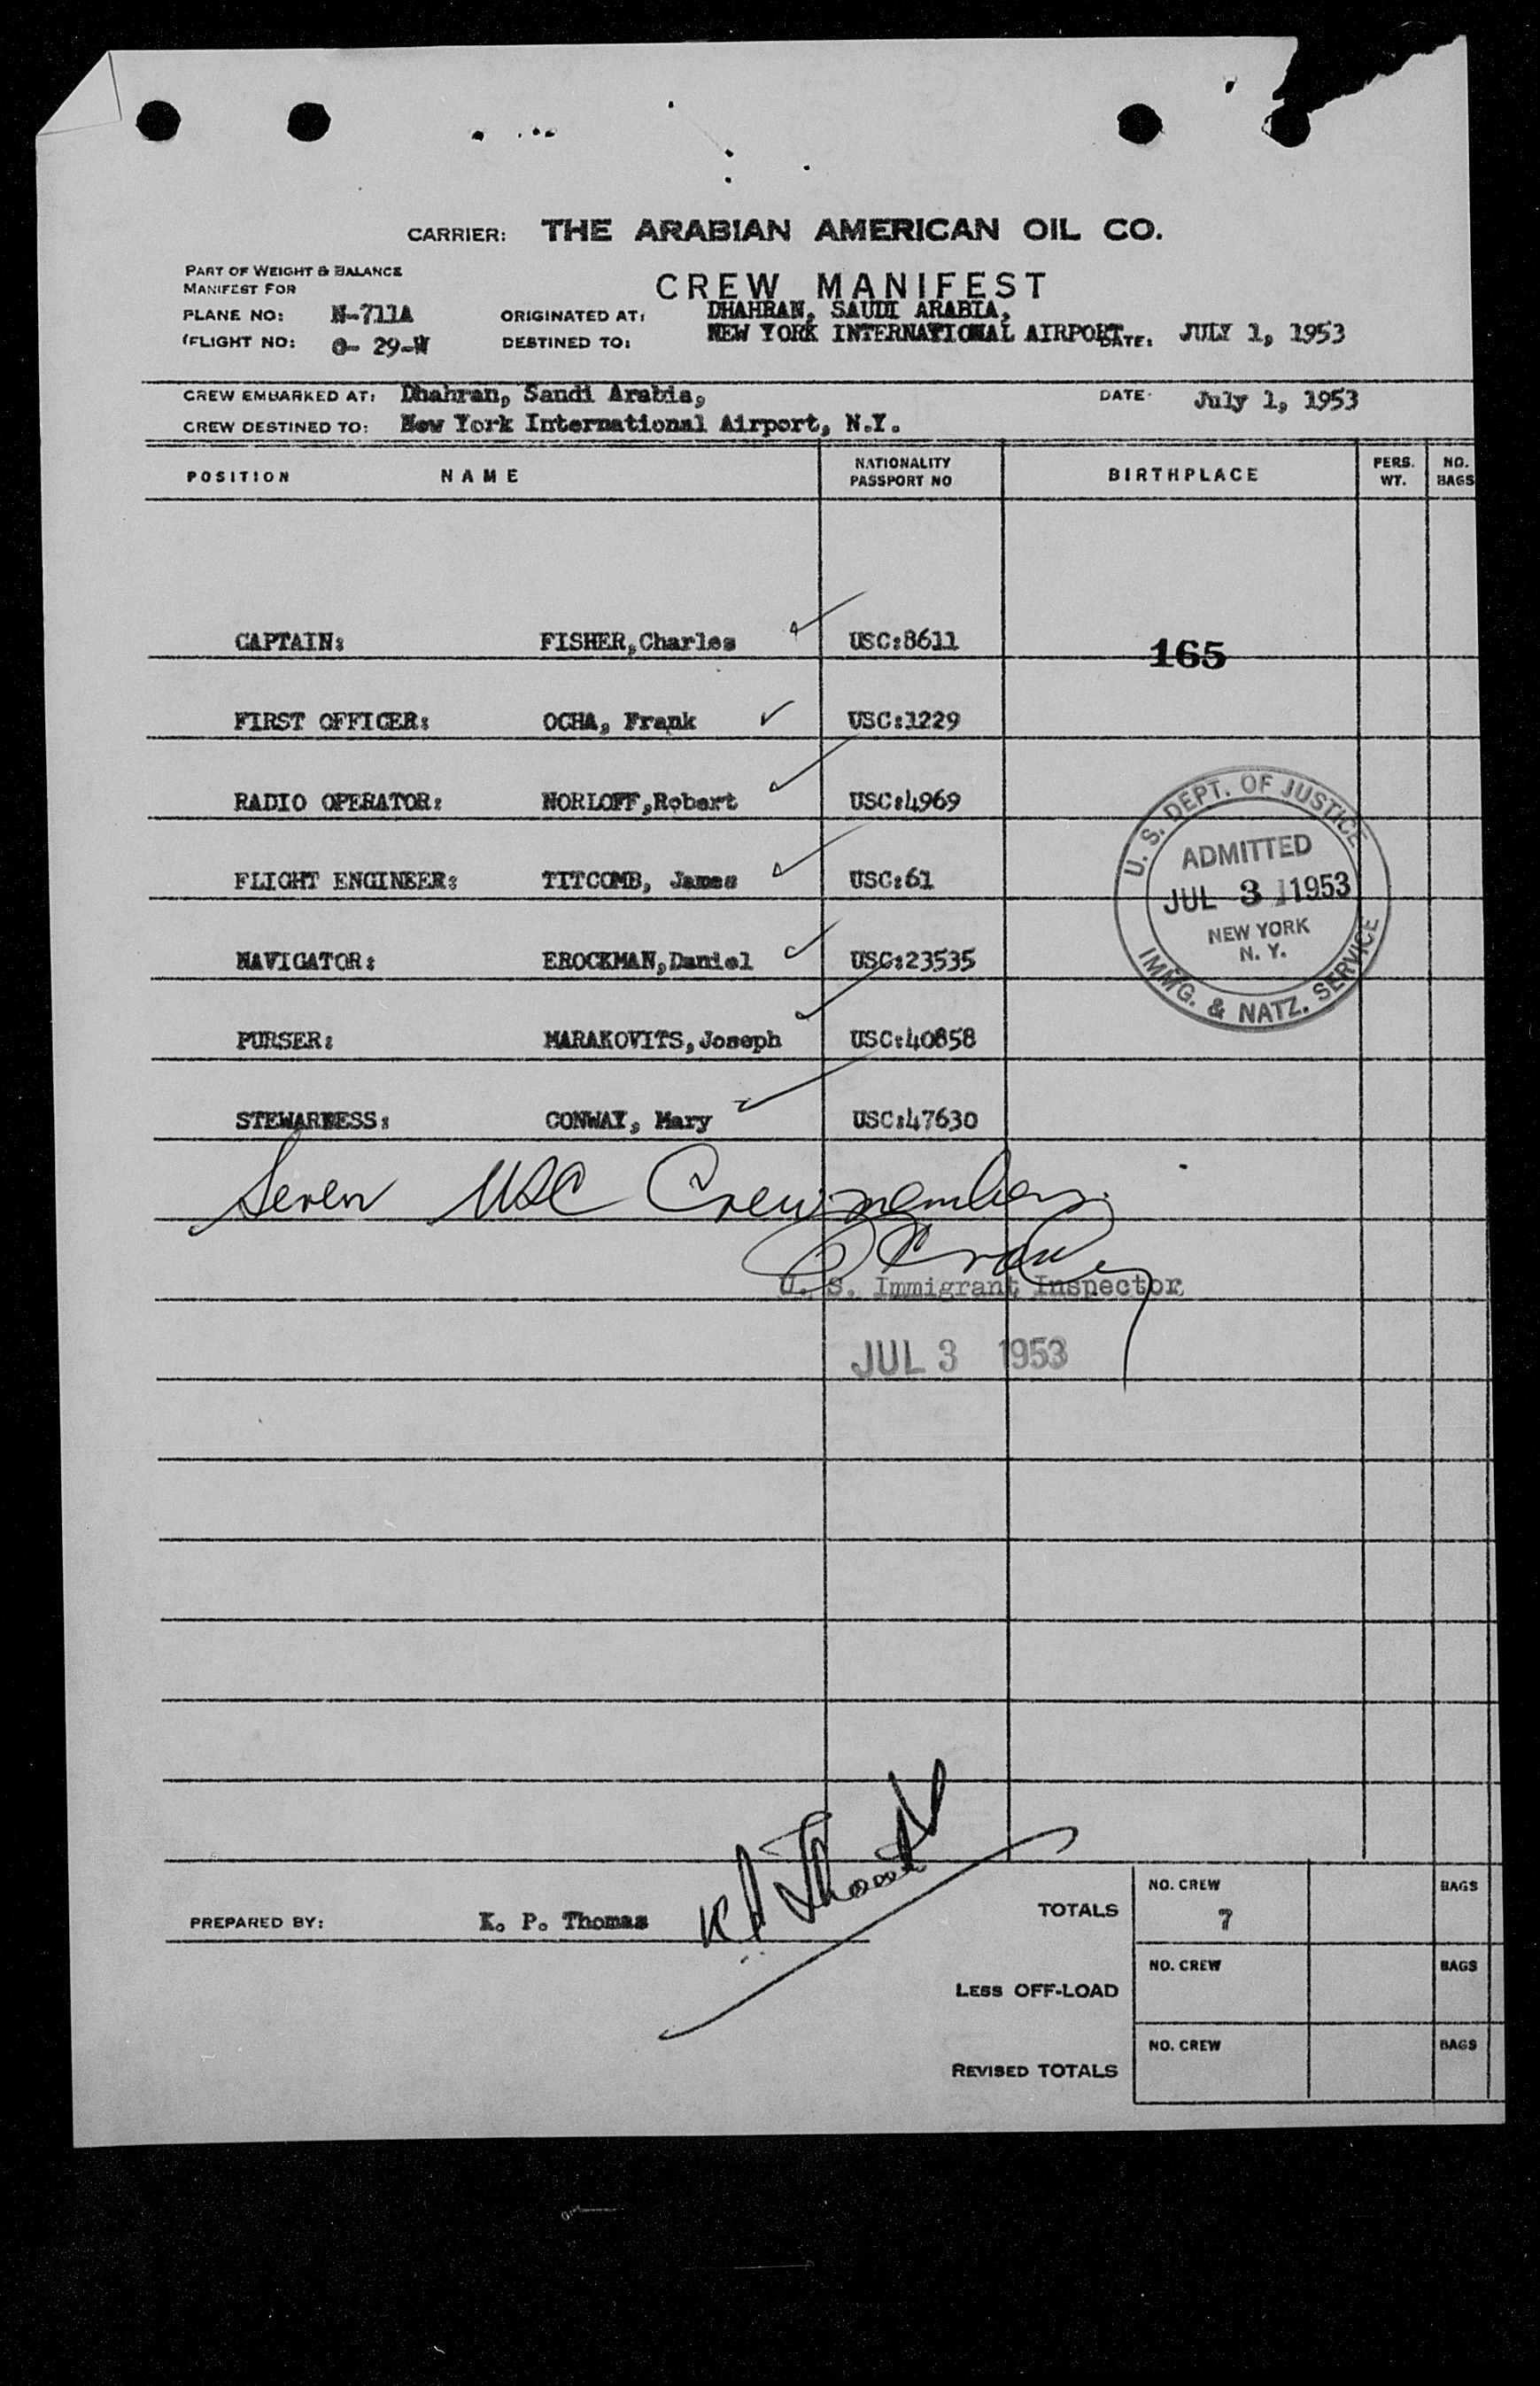 CARRIER: THE ARABIAN AMERICAN OIL CO.
PART OF WEIGHT & BALANCE
MANIFEST FOR
CREW MANIFEST
PLANE NO: N-711A ORIGINATED AT: DHAHRAN, SAUDI ARABIA,
FLIGHT NO: 0- 29-W DESTINED TO: NEW YORK INTERNATIONAL AIRPORT DATE: JULY 1, 1953
CREW EMBARKED AT: Dhahran, Saudi Arabia, DATE: July 1, 1953
CREW DESTINED TO: New York International Airport, N.Y.
POSITION NAME NATIONALITY PASSPORT NO BIRTHPLACE PERS. WT. NO. BAGS
CAPTAIN: FISHER,Charles USC:8611 165
FIRST OFFICER: OCHA, Frank USC:1229
RADIO OPERATOR: NORLOFF,Robert USC:4969
FLIGHT ENGINEER: TITCOMB, James USC:61
NAVIGATOR: BROCKMAN,Daniel USC:23535
PURSER: MARAKOVITS,Joseph USC:40858
STEWARDESS: CONWAY, Mary USC:47630
U. S. DEPT. OF JUSTICE
ADMITTED
JUL 3 1953
NEW YORK
N. Y.
IMMG. & NATZ. SERVICE
Seven USC Crewmembers.
U. S. Immigrant Inspector
JUL 3 1953
PREPARED BY: K. P. Thomas K P Thomas
TOTALS NO. CREW 7 BAGS
LESS OFF-LOAD NO. CREW BAGS
REVISED TOTALS NO. CREW BAGS